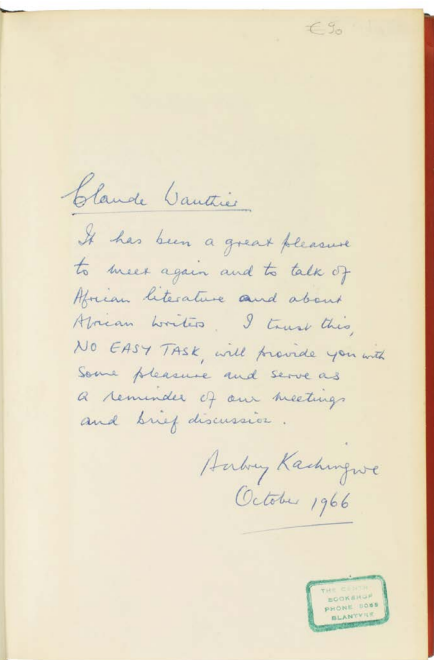 €90
Claude Wauthier
It has been a great pleasure
to meet again and to talk of
African literature and about
African writers. I trust this,
NO EASY TASK, will provide you with
some pleasure and serve as
a reminder of our meetings
and brief discussion.
Aubrey Kachingwe
October 1966
THE
BOOKSHOP
PHONE
BLANTYRE